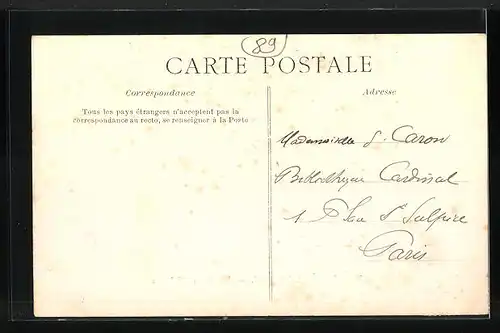 89
CARTE POSTALE
Correspondance
Tous les pays étrangers n'acceptent pas la
correspondance au recto, se renseigner à la Poste
Adresse
Mademoiselle S. Caron
Bibliothèque Cardinal
1 Place St Sulpice
Paris